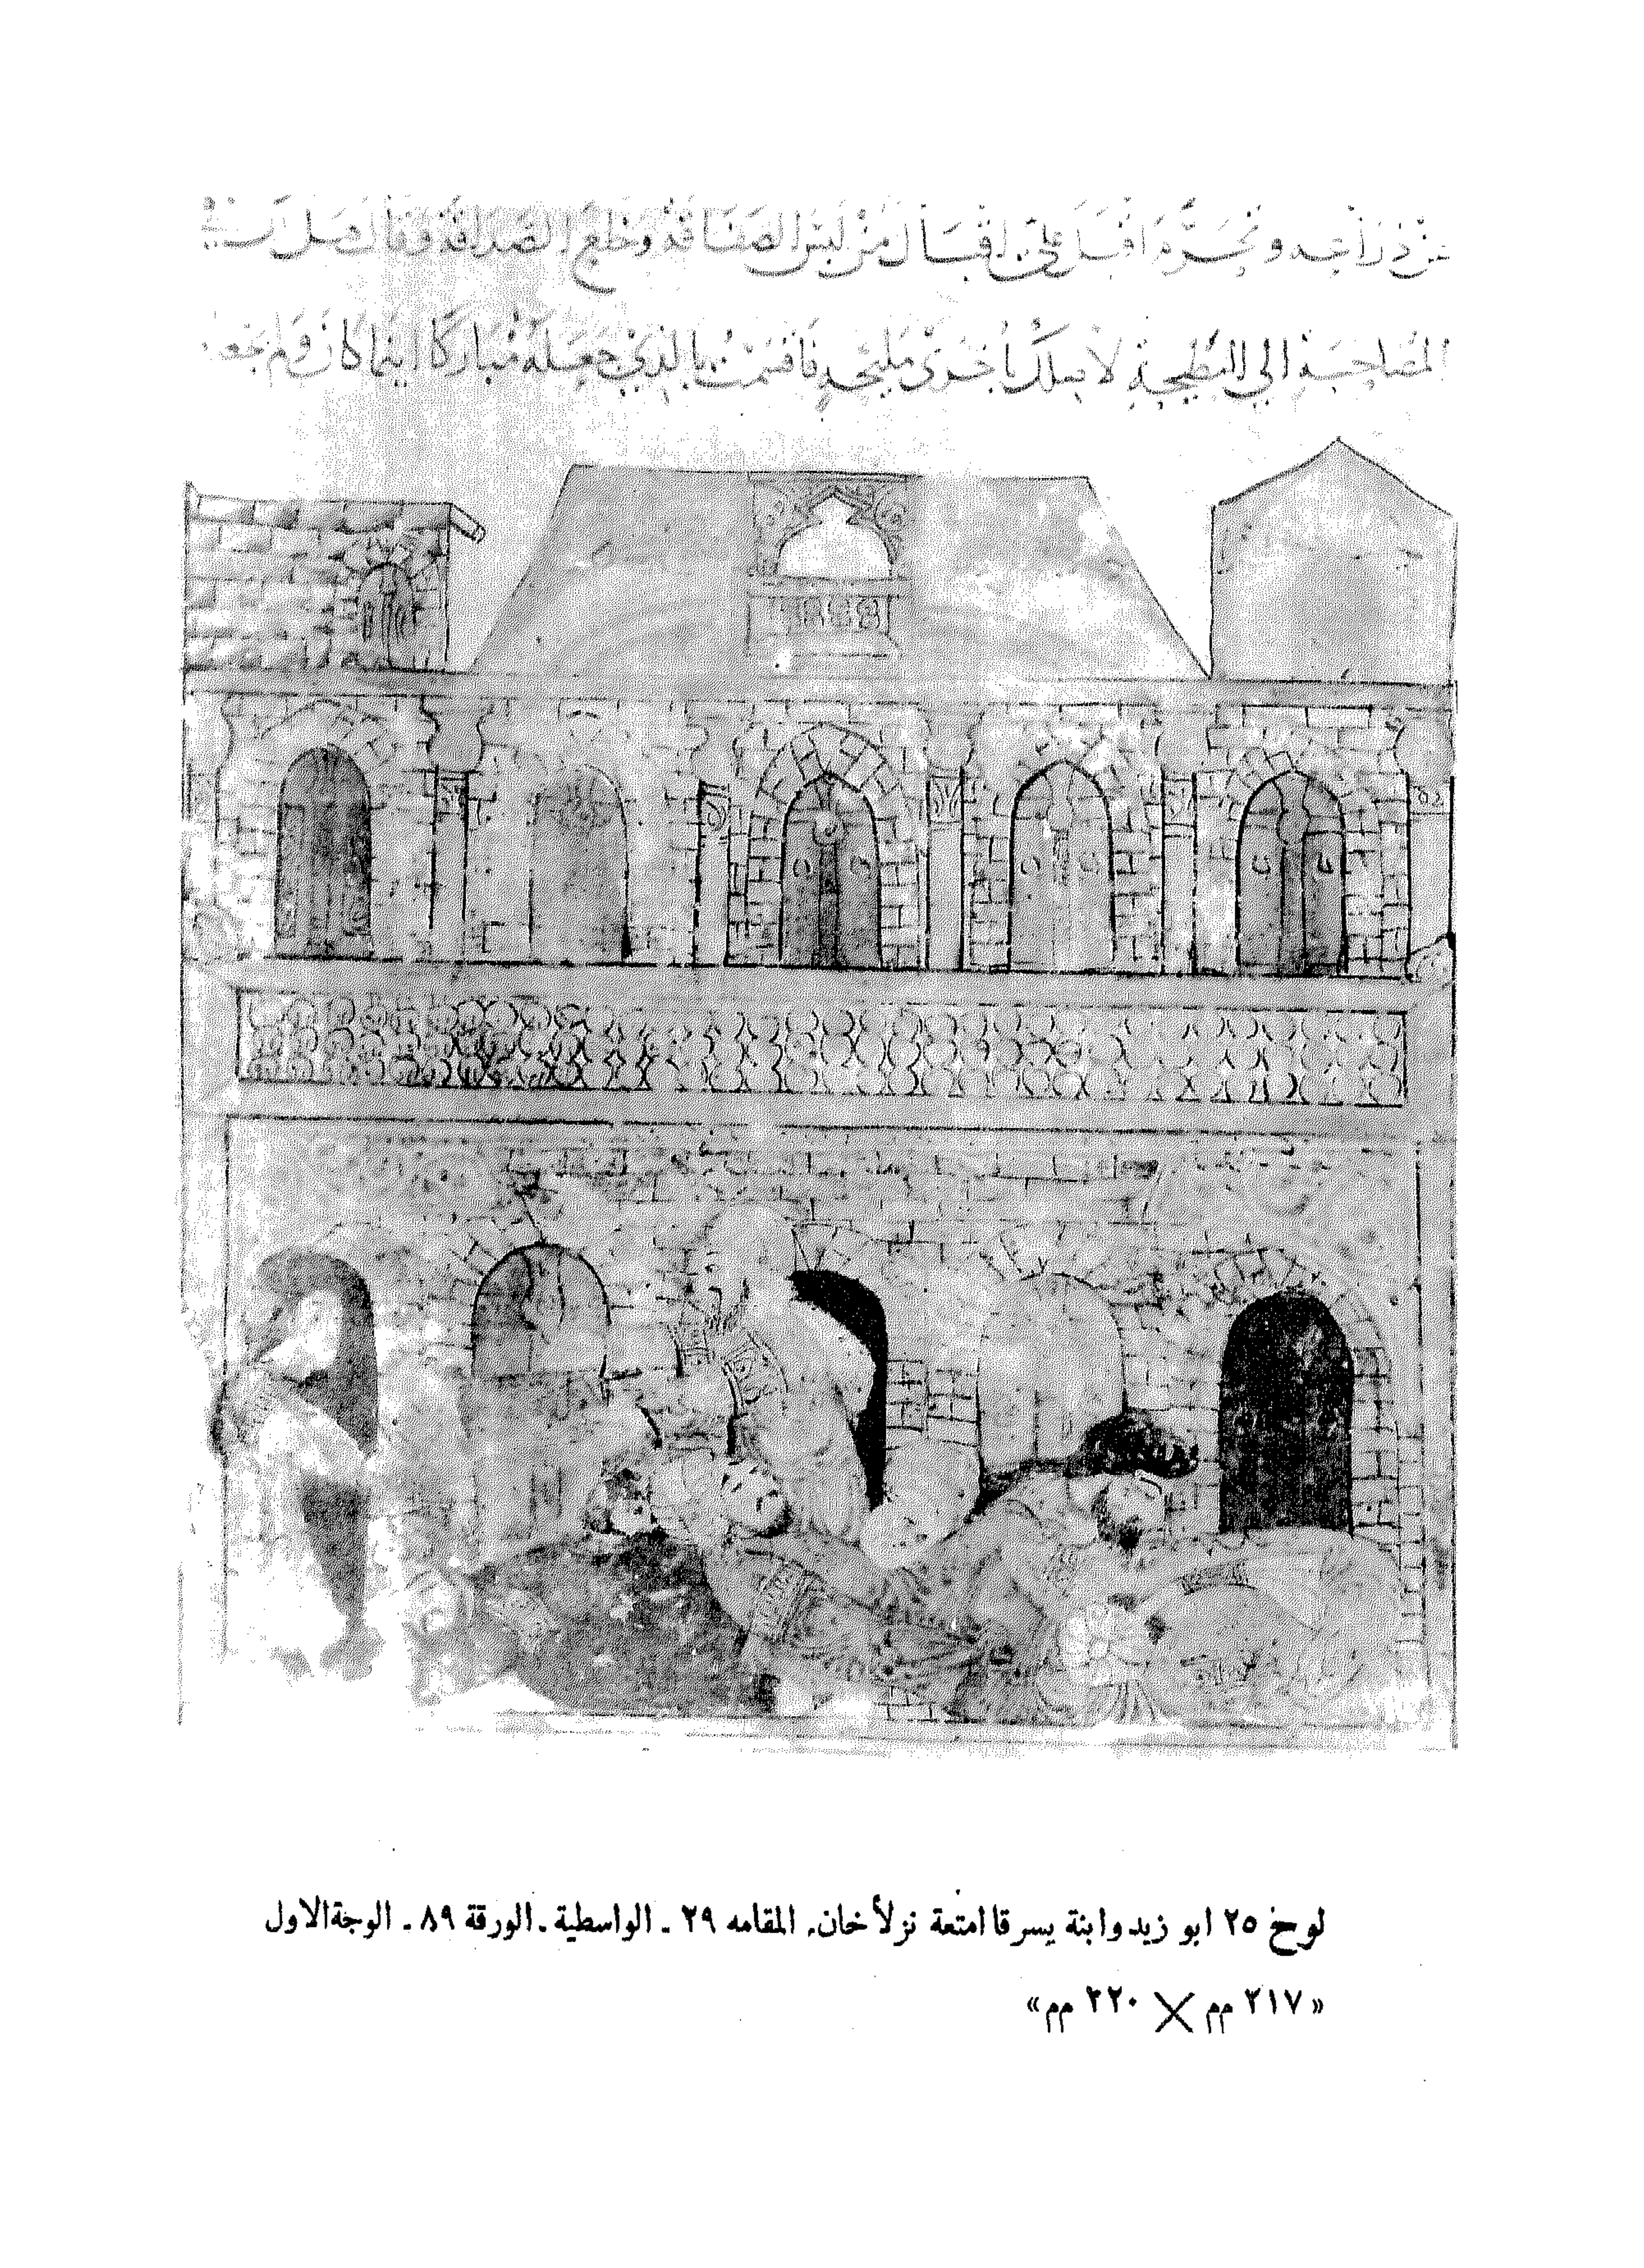 عن ذراعيه وتجرم اقبل علي اقبال من لبس الصفاقة وخلع الصداقة وقال هل لك في
المصاحبة الي البطيحة لا صلك باخري مليحة فاقسمت بالذي جعله مباركا اينما كان ولم يجعله
لوح ٢٥ ابو زيد وابنة يسرقا امتعة نزلأ خان. المقامه ٢٩ - الواسطية - الورقة ٨٩ - الوجة الاول
«٢١٧ مم × ٢٢٠ مم»